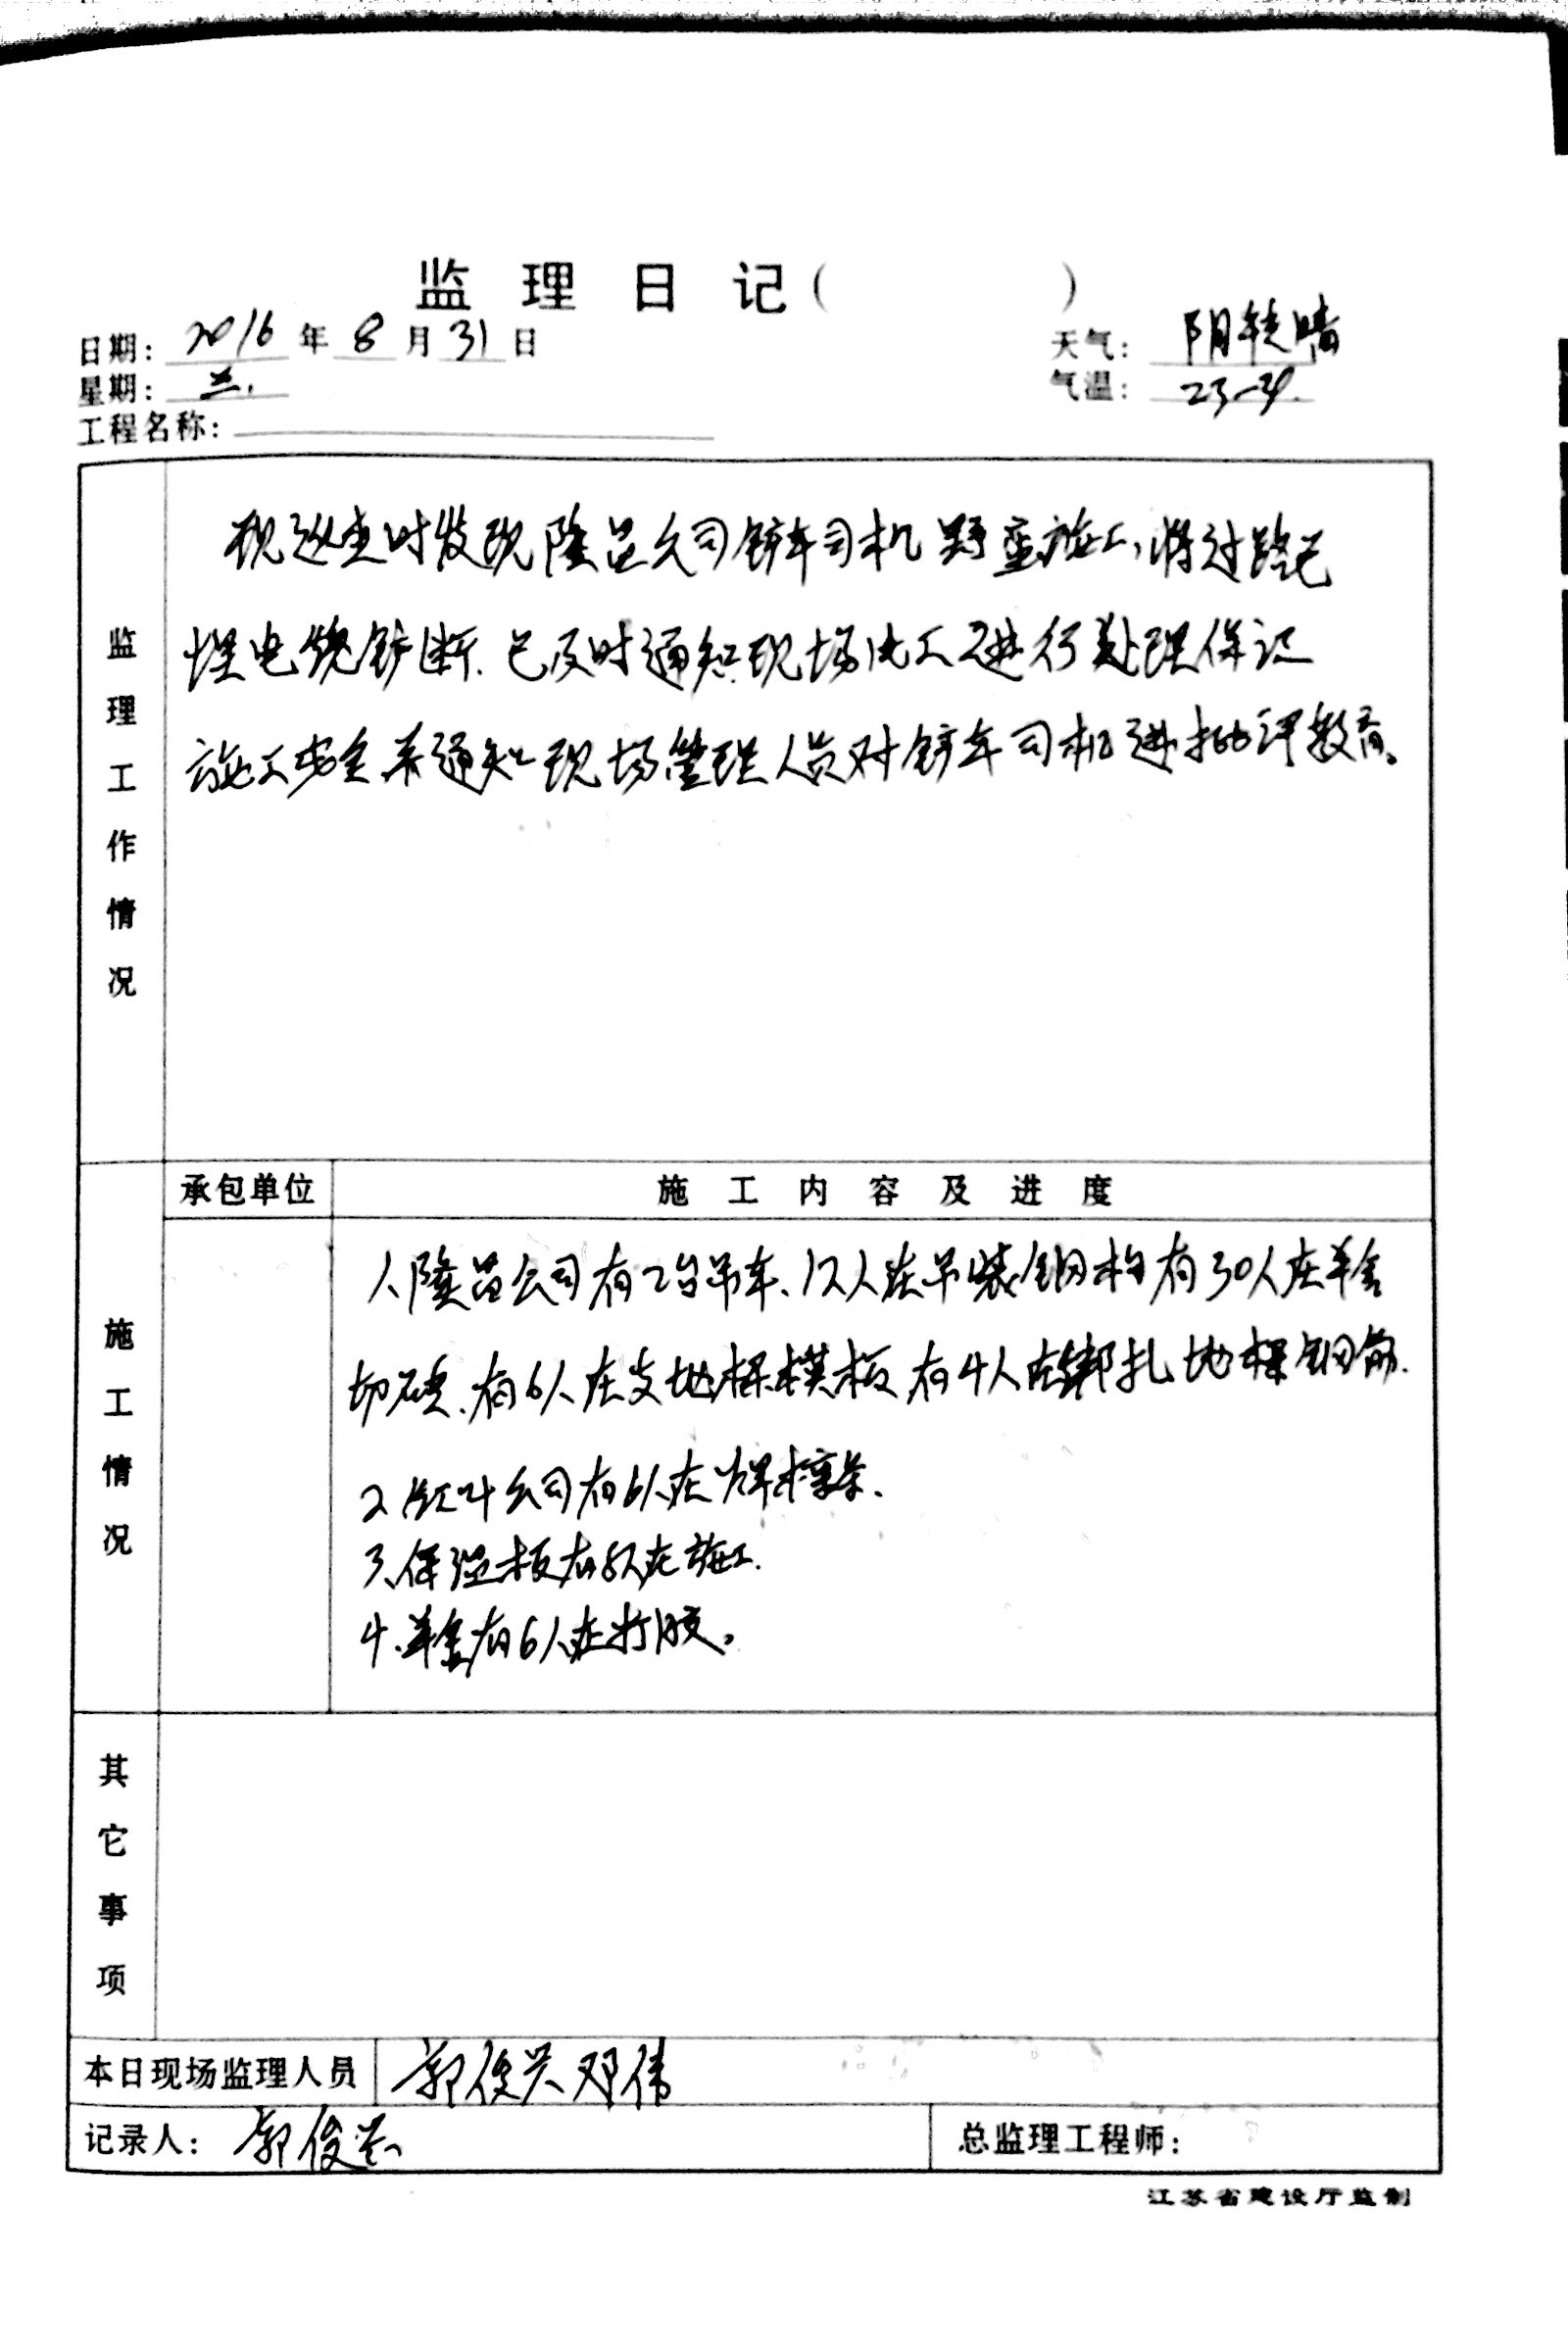 监理日记(　　　)
日期: 2016 年 8 月 31 日
天气: 阴转晴
星期: 三.
气温: 23-31.
工程名称:
监理工作情况
现巡查时发现隆昌公司铲车司机野蛮施工,将过路已
埋电缆铲断.已及时通知现场电工进行处理保证
施工安全.并通知现场管理人员对铲车司机进批评教育。
承包单位
施工内容及进度
施工情况
1、隆昌公司有2台吊车、12人在吊装钢构有30人在羊舍
切砖、有6人在支地梁模板有4人在绑扎地梁钢筋.
2、红叶公司有6人在焊檩条、
3、保温板有8人在施工.
4、羊舍有6人在打胶。
其它事项
本日现场监理人员 郭俊兴 邓伟
记录人: 郭俊兴
总监理工程师:
江苏省建设厅监制